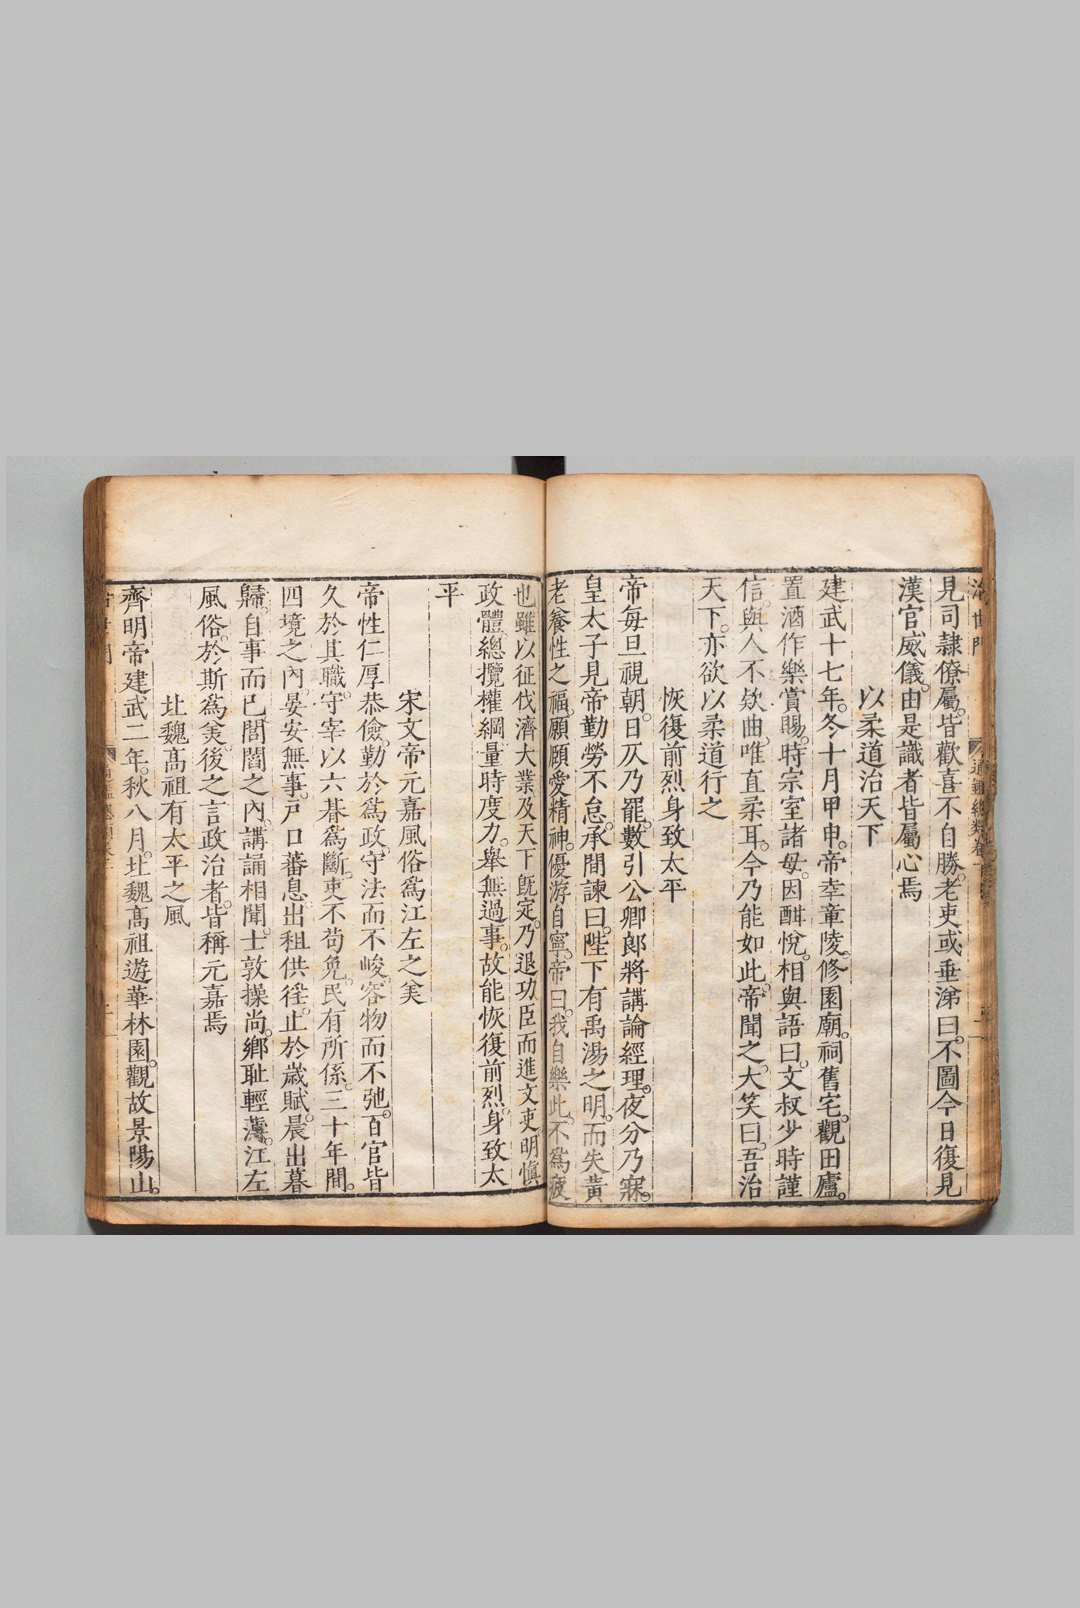 見司隷僚屬。皆歡喜不自勝。老吏或垂涕曰。不圖今日復見
漢官威儀。由是識者皆屬心焉
以柔道治天下
建武十七年。冬十月甲申。帝幸章陵。修園廟。祠舊宅。觀田廬。
置酒作樂賞賜。時宗室諸母。因酣悅。相與語曰。文叔少時謹
信。與人不欵曲。唯直柔耳。今乃能如此。帝聞之。大笑曰。吾治
天下。亦欲以柔道行之
恢復前烈身致太平
帝每旦視朝。日仄乃罷。數引公卿郞將講論經理。夜分乃寐。
皇太子見帝勤勞不怠。承間諫曰。陛下有禹湯之明。而失黄
老養性之福。願願愛精神。優游自寧。帝曰。我自樂此。不爲疲
也雖以征伐濟大業及天下旣定。乃退功臣而進文吏。明愼
政體。總攬權綱。量時度力。舉無過事。故能恢復前烈。身致太
平
宋文帝元嘉風俗爲江左之美
帝性仁厚恭儉。勤於爲政。守法而不峻。容物而不弛。百官皆
久於其職。守宰以六朞爲斷。吏不苟免。民有所係。三十年間。
四境之內。晏安無事。戸口蕃息。出租供徭。止於歲賦。晨出暮
歸。自事而已閭閻之內。講誦相聞。士敦操尚。鄉耻輕薄。江左
風俗。於斯爲美。後之言政治者。皆稱元嘉焉
北魏高祖有太平之風
齊明帝建武二年。秋八月。北魏高祖遊華林園。觀故景陽山。